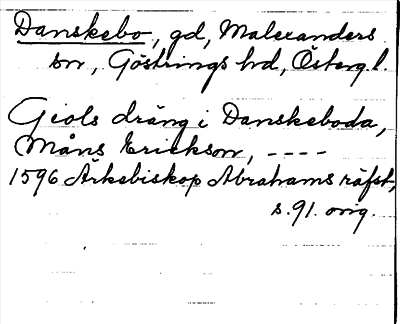 Danskebo, gd, Malexanders
sn, Göstrings hd, Östergl.
Geols dräng i Danskeboda,
Måns Erickson, ----
1596 Ärkebiskop Abrahams räfst,
s. 91. orig.